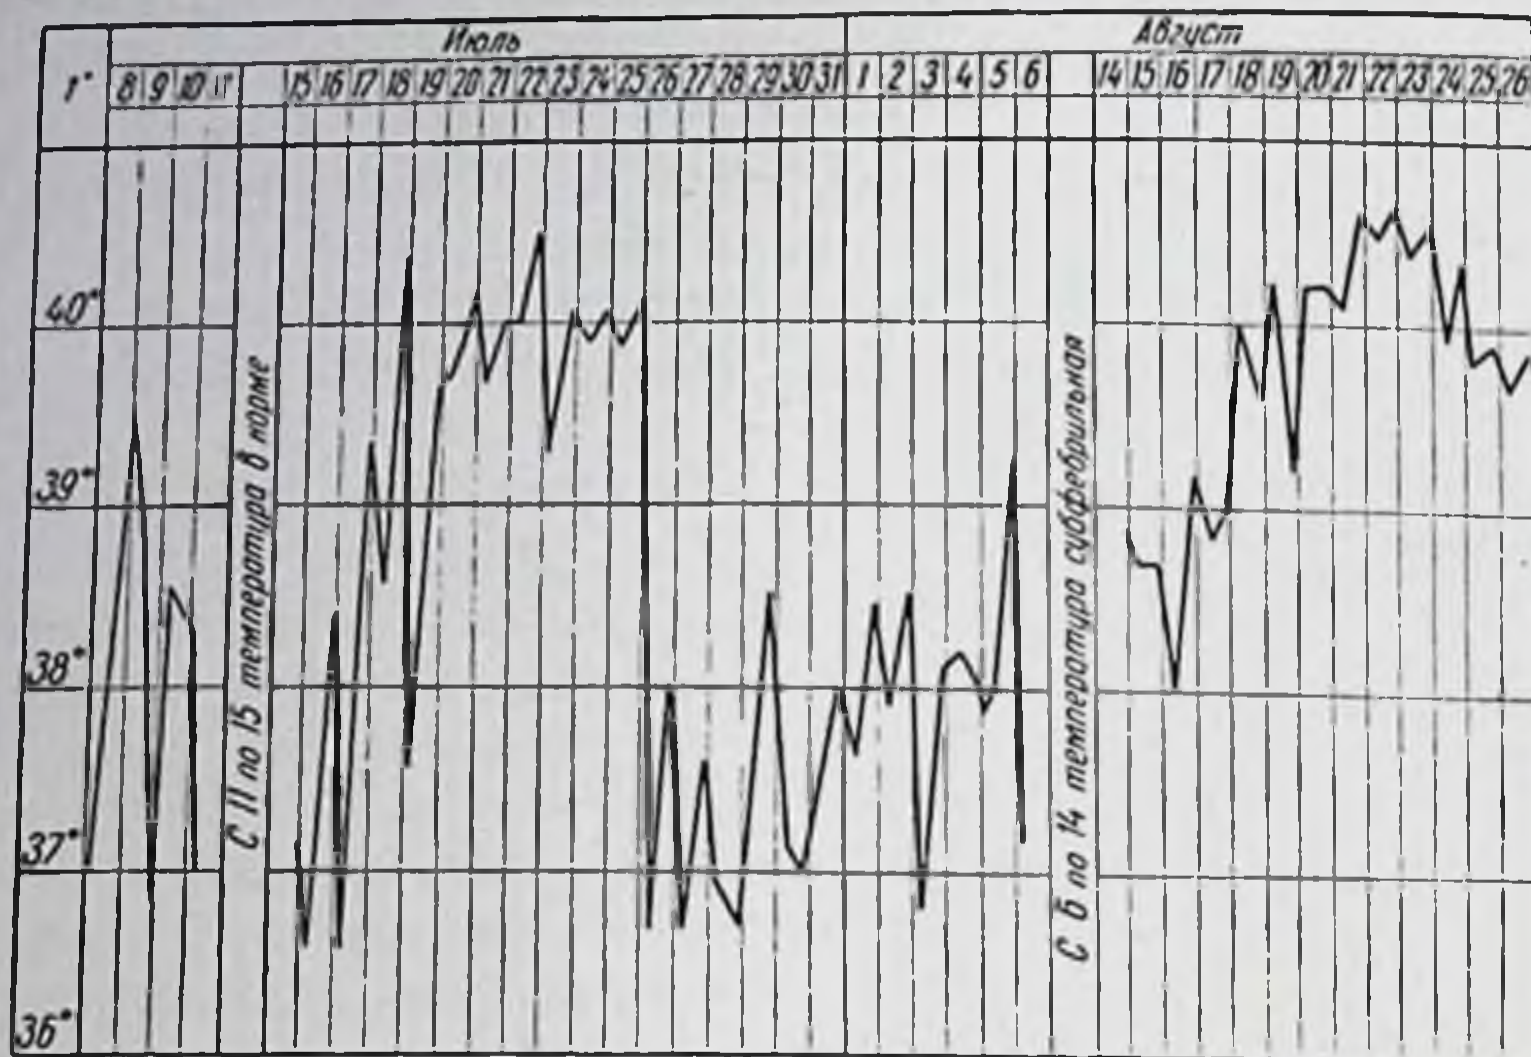 Июль
Август
t° 8 9 10 11 15 16 17 18 19 20 21 22 23 24 25 26 27 28 29 30 31 1 2 3 4 5 6 14 15 16 17 18 19 20 21 22 23 24 25 26
40°
39°
38°
37°
36°
С 11 по 15 температура в норме
С 6 по 14 температура субфебрильная